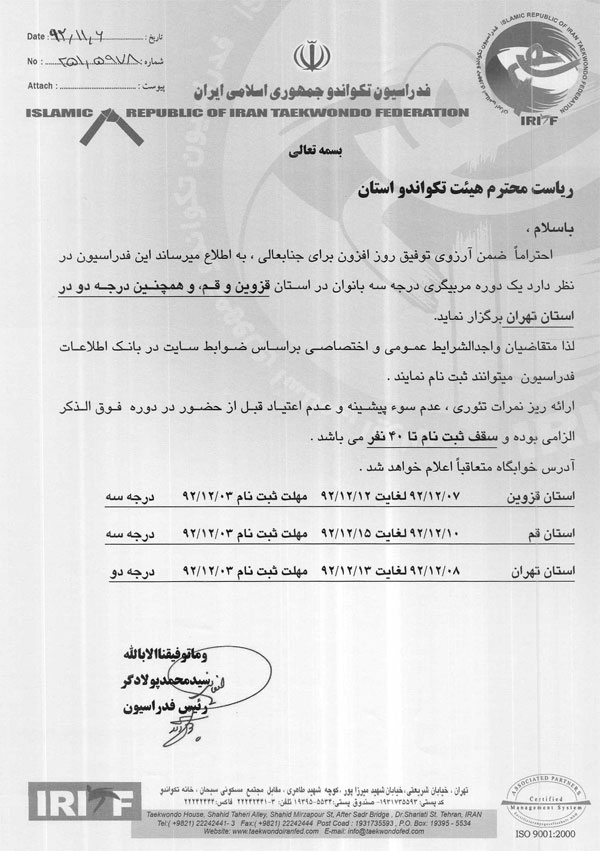 Date : ۹۲/۱۱/۶ تاریخ :
No : ۲۵۱۰۵۹۷۸ شماره :
Attach : پیوست :
ISLAMIC REPUBLIC OF IRAN TAEKWONDO FEDERATION
IRITF
فدراسیون تکواندو جمهوری اسلامی ایران
ISLAMIC REPUBLIC OF IRAN TAEKWONDO FEDERATION
بسمه تعالی
ریاست محترم هیئت تکواندو استان
باسلام ،
احتراماً ضمن آرزوی توفیق روز افزون برای جنابعالی ، به اطلاع میرساند این فدراسیون در
نظر دارد یک دوره مربیگری درجه سه بانوان در استان قزوین و قم، و همچنین درجه دو در
استان تهران برگزار نماید.
لذا متقاضیان واجدالشرایط عمومی و اختصاصی براساس ضوابط سایت در بانک اطلاعات
فدراسیون میتوانند ثبت نام نمایند .
ارائه ریز نمرات تئوری ، عدم سوء پیشینه و عدم اعتیاد قبل از حضور در دوره فوق الذکر
الزامی بوده و سقف ثبت نام تا ۴۰ نفر می باشد .
آدرس خوابگاه متعاقباً اعلام خواهد شد .
استان قزوین ۹۲/۱۲/۰۷ لغایت ۹۲/۱۲/۱۲ مهلت ثبت نام ۹۲/۱۲/۰۳ درجه سه
استان قم ۹۲/۱۲/۱۰ لغایت ۹۲/۱۲/۱۵ مهلت ثبت نام ۹۲/۱۲/۰۳ درجه سه
استان تهران ۹۲/۱۲/۰۸ لغایت ۹۲/۱۲/۱۳ مهلت ثبت نام ۹۲/۱۲/۰۳ درجه دو
وماتوفیقناالابالله
سیدمحمدپولادگر
رئیس فدراسیون
IRITF
تهران ، خیابان شریعتی،خیابان شهید میرزا پور ،کوچه شهید طاهری ، مقابل مجتمع مسکونی سبحان ، خانه تکواندو
کد پستی:۱۹۳۱۷۳۵۵۹۳- صندوق پستی:۵۵۳۴-۱۹۳۹۵ تلفن: ۳-۲۲۲۴۲۴۴۱ فاکس:۲۲۲۴۲۴۴۴
Taekwondo House, Shahid Taheri Alley, Shahid Mirzapour St, After Sadr Bridge , Dr.Shariati St. Tehran, IRAN
Tel:( +9821) 22242441- 3 Fax:( +9821) 22242444 Post Coad : 1931735593 , P.O. Box: 19395 - 5534
Website: www.taekwondoiranfed.com E-mail: info@taekwondofed.com
ASSOCIATED PARTNERS
Certified
Management System
ISO 9001:2000